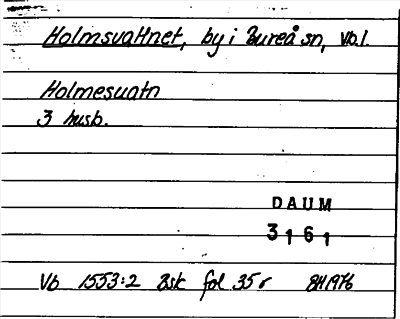 Holmsvattnet, by i Bureå sn, Vb.l.
Holmesuatn
3 husb.
DAUM
3161
Vb 1553:2 Bsk fol 35 r BH1976